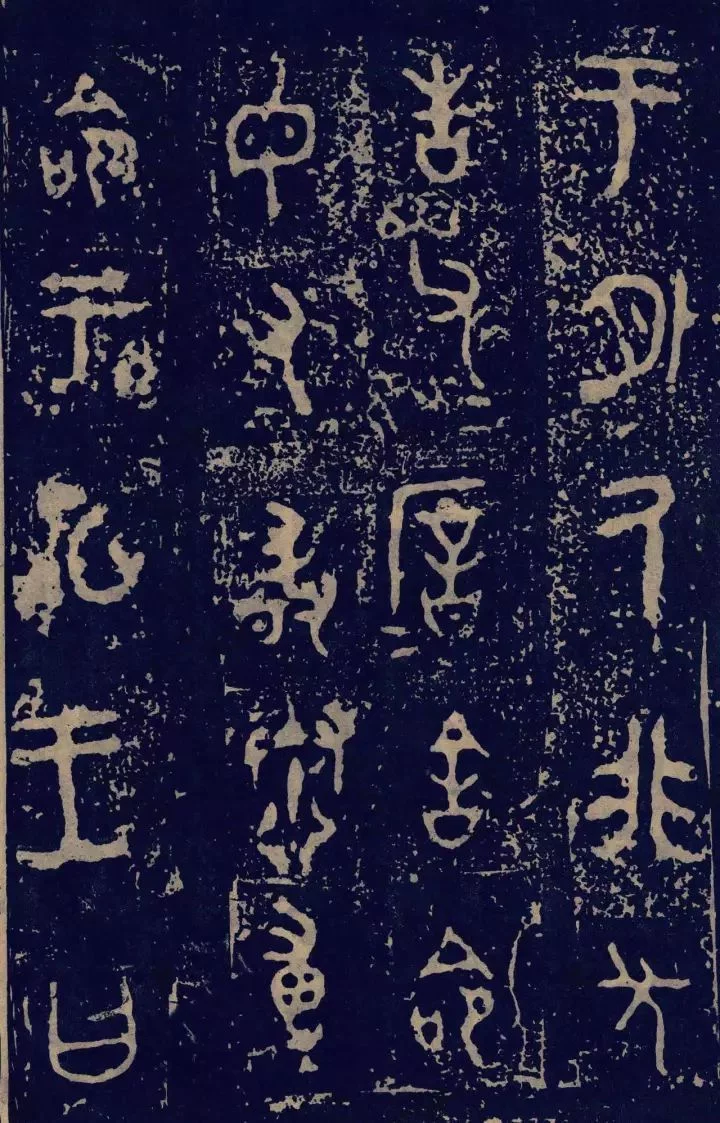 于外厥非先
告父厝舍命
毋又敢惷尃
命于外王曰